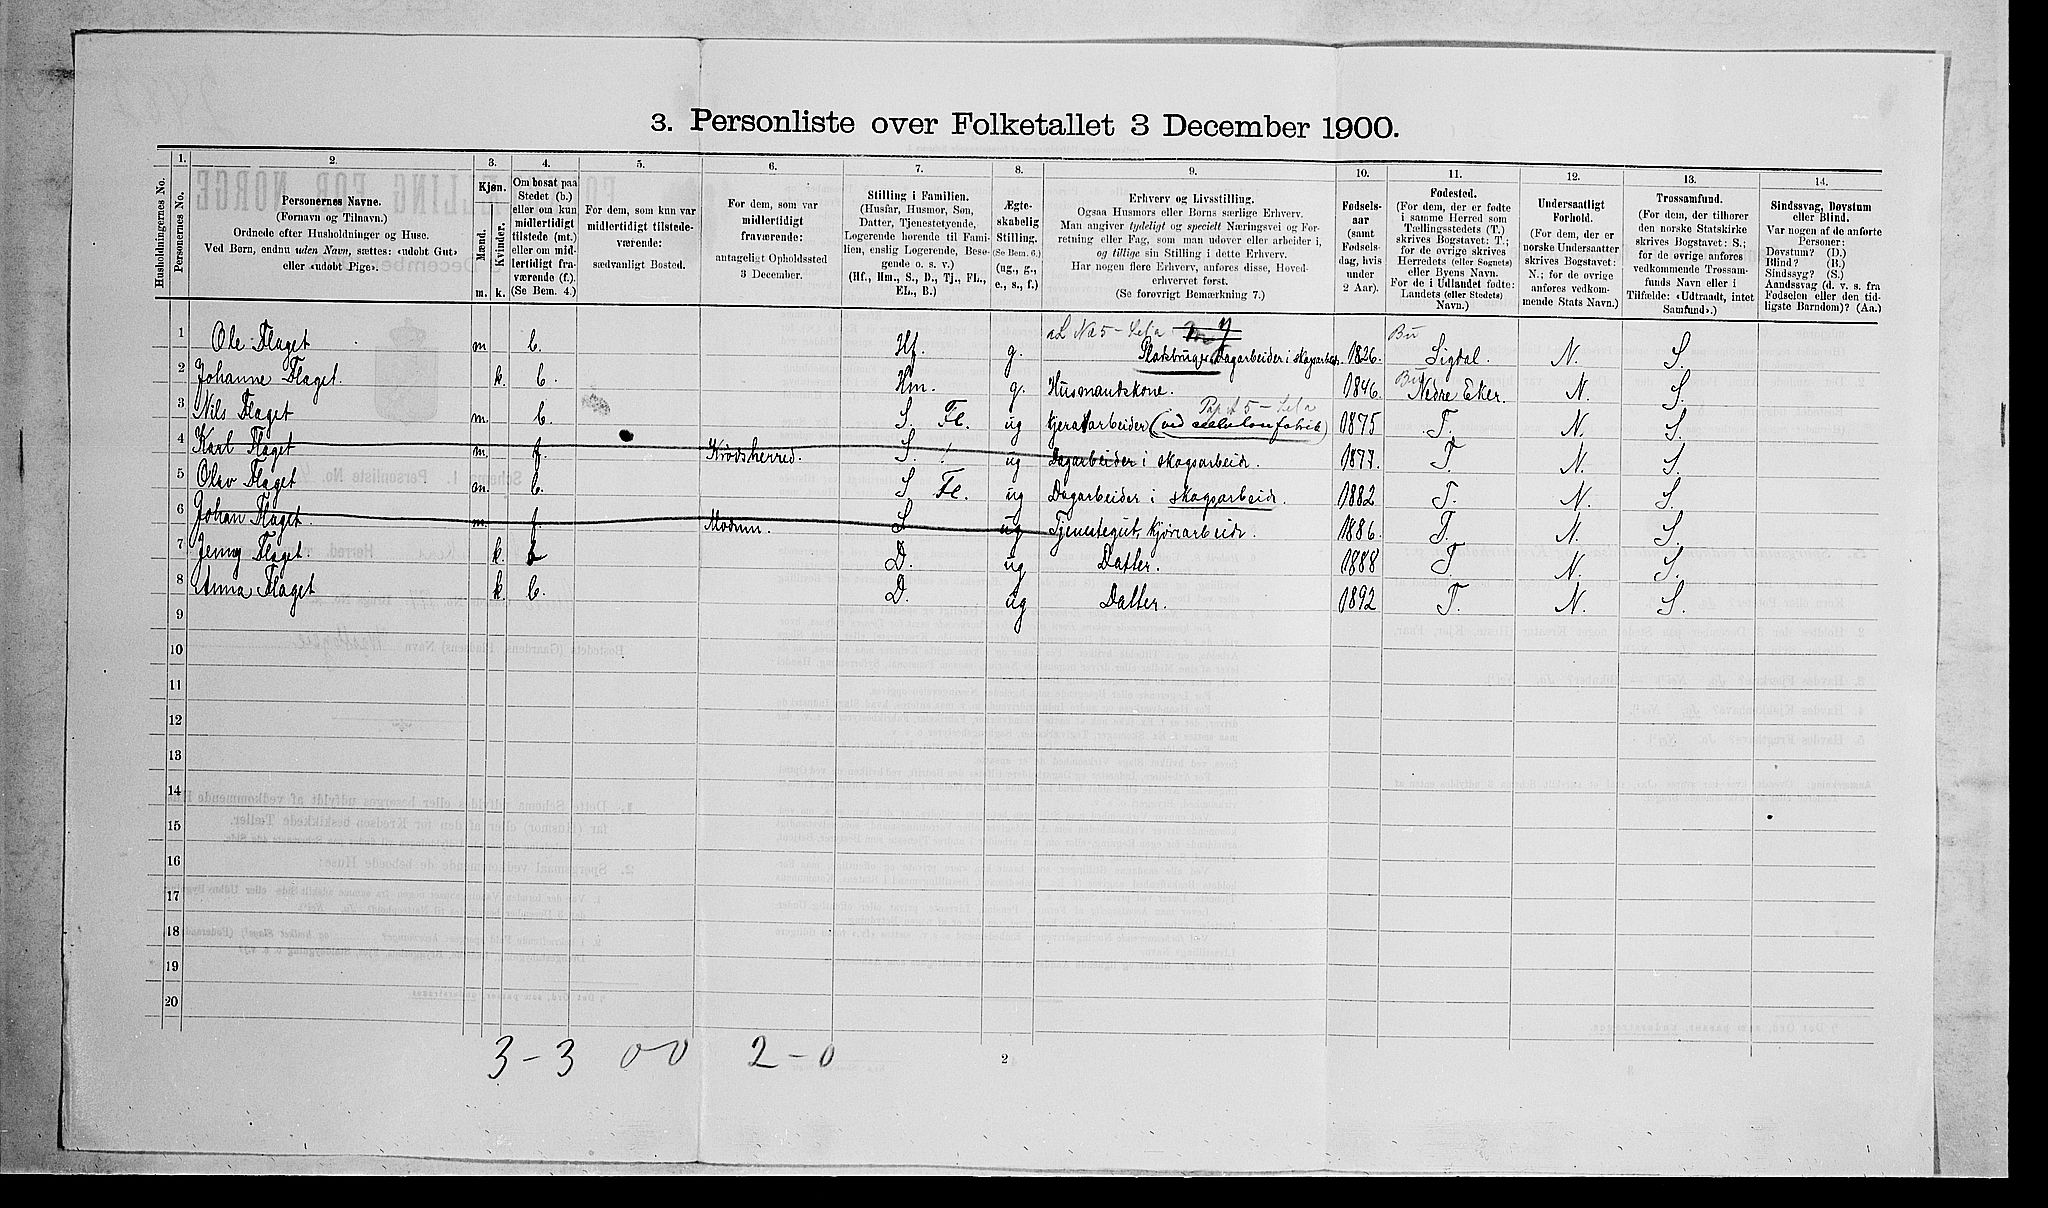 3. Personliste over Folketallet 3 December 1900.
Husholdningernes No.
1.
Personernes No.
2.
Personernes Navne.
(Fornavn og Tilnavn.)
Ordnede efter Husholdninger og Huse.
Ved Børn, endnu uden Navn, sættes: «udøbt Gut»
eller «udøbt Pige».
3.
Kjøn.
Mænd.
Kvinder.
m.
k.
4.
Om bosat paa
Stedet (b.)
eller om kun
midlertidigt
tilstede (mt.)
eller om mid-
lertidigt fra-
værende (f.).
(Se Bem. 4.)
5.
For dem, som kun var
midlertidigt tilstede-
værende:
sædvanligt Bosted.
6.
For dem, som var
midlertidigt
fraværende:
antageligt Opholdssted
3 December.
7.
Stilling i Familien.
(Husfar, Husmor, Søn,
Datter, Tjenestetyende,
Logerende hørende til Fami-
lien, enslig Logerende, Besø-
gende o. s. v.)
(Hf., Hm., S., D., Tj., FL.,
EL., B.)
8.
Ægte-
skabelig
Stilling.
(Se Bem. 6.)
(ug., g.,
e., s., f.)
9.
Erhverv og Livsstilling.
Ogsaa Husmors eller Børns særlige Erhverv.
Man angiver tydeligt og specielt Næringsvei og For-
retning eller Fag, som man udøver eller arbeider i,
og tillige sin Stilling i dette Erhverv.
Har nogen flere Erhverv, anføres disse, Hoved-
erhvervet først.
(Se forøvrigt Bemærkning 7.)
10.
Fødsels-
aar
(samt
Fødsels-
dag, hvis
under
2 Aar).
11.
Fødested.
(For dem, der er fødte
i samme Herred som
Tællingsstedets (T.)
skrives Bogstavet: T.;
for de øvrige skrives
Herredets (eller Sognets)
eller Byens Navn.
For de i Udlandet fødte:
Landets (eller Stedets)
Navn.)
12.
Undersaatligt
Forhold.
(For dem, der er
norske Undersaatter
skrives Bogstavet:
N.; for de øvrige
anføres vedkom-
mende Stats Navn.)
13.
Trossamfund.
(For dem, der tilhører
den norske Statskirke
skrives Bogstavet: S.;
for de øvrige anføres
vedkommende Trossam-
funds Navn eller i
Tilfælde: «Udtraadt, intet
Samfund».)
14.
Sindssvag, Døvstum
eller Blind.
Var nogen af de anførte
Personer:
Døvstum? (D.)
Blind? (B.)
Sindssyg? (S.)
Aandssvag (d. v. s. fra
Fødselen eller den tid-
ligste Barndom)? (Aa.)
1 Ole Flaget m. b. Hf. g. Pladsbruger Dagarbeider i skogsarbeide. 1826. Bu Sigdal. N. S.
2 Johanne Flaget. k. b. Hm. g. Husmandskone. 1846. Bu Nedre Eker. N. S.
3 Nils Flaget m. b. S. FL. ug (ved cellulosefabrik) 1875 T. N. S.
4 Karl Flaget m. f. Krødsherred. S. ug Dagarbeider i skogsarbeide. 1877. T. N. S.
5 Olav Flaget m. b. S FL. ug Dagarbeider i skogsarbeide. 1882 T. N. S.
6 Johan Flaget. m. f. Modum. S ug Tjenestegut, kjörearbeide. 1886. T. N. S.
7 Jenny Flaget k. b D. ug Datter. 1888 T. N. S.
8 Anna Flaget k. b. D. ug Datter. 1892 T. N. S.
9
10
11
12
13
14
15
16
17
18
19
20
3 - 3 0 - 0 2 - 0
2